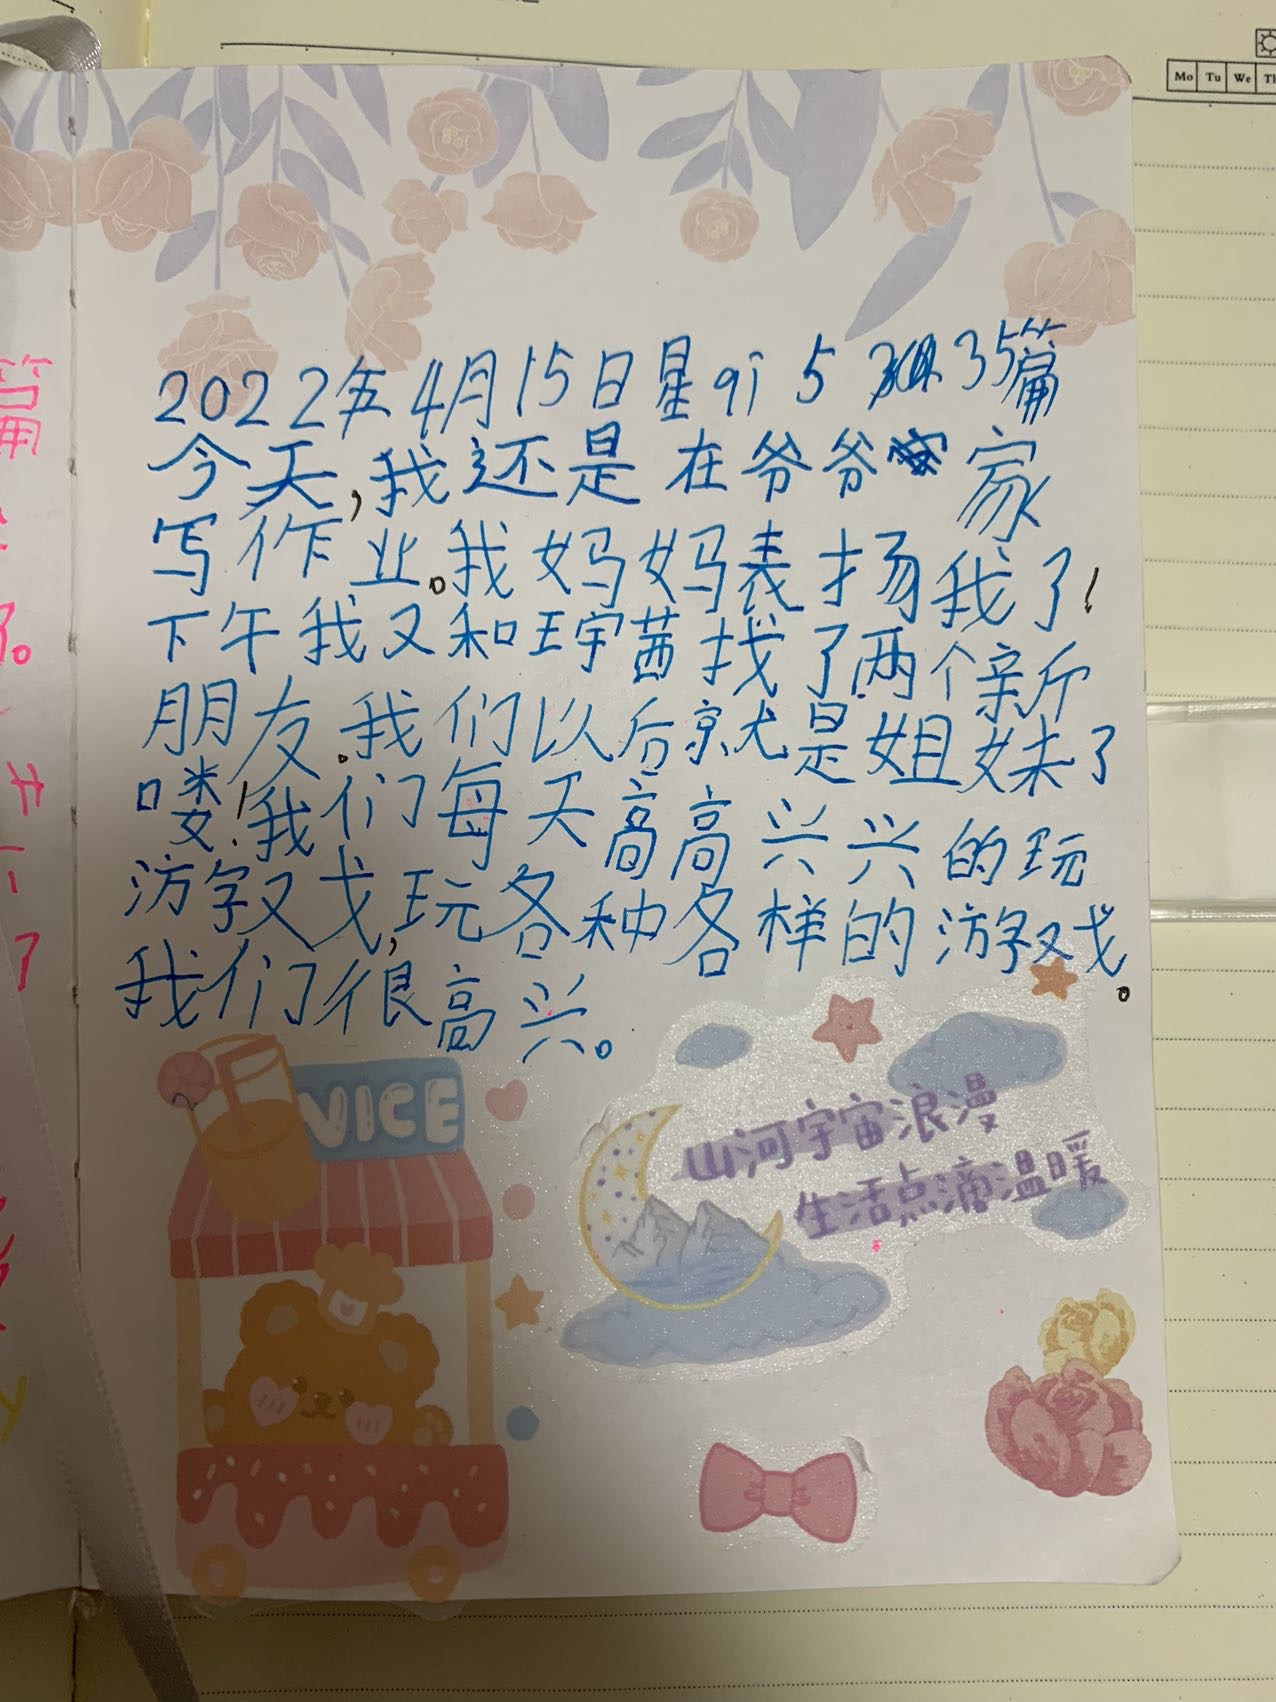 Mo Tu We Th
2022年4月15日星qi 5 35篇
今天,我还是在爷爷家
写作业。我妈妈表扬我了!
下午我又和王宇茜找了两个新
朋友。我们以后就是姐妹了
喽!我们每天高高兴兴的玩
游戏,玩各种各样的游戏。
我们很高兴。
NICE
山河宇宙浪漫
生活点滴温暖
篇
了。
了